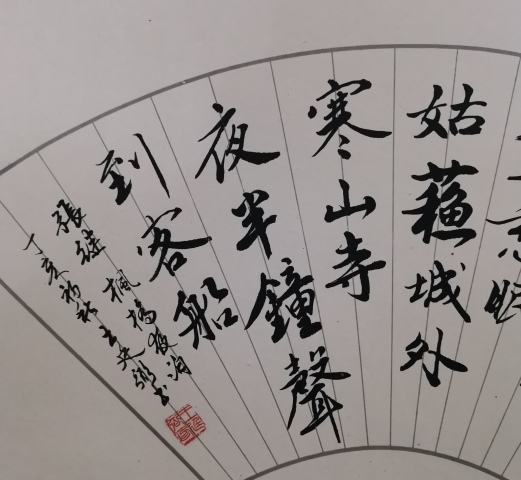 姑蘇城外
寒山寺
夜半鐘聲
到客船
張繼楓橋夜泊
丁亥初秋